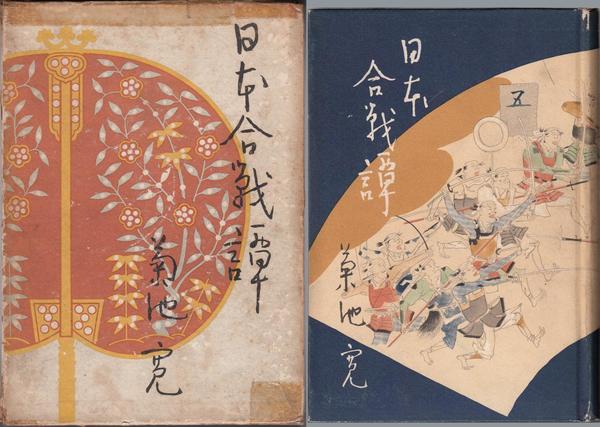 日本合戦譚
菊池寛
日本
合戦譚
菊池寛
五